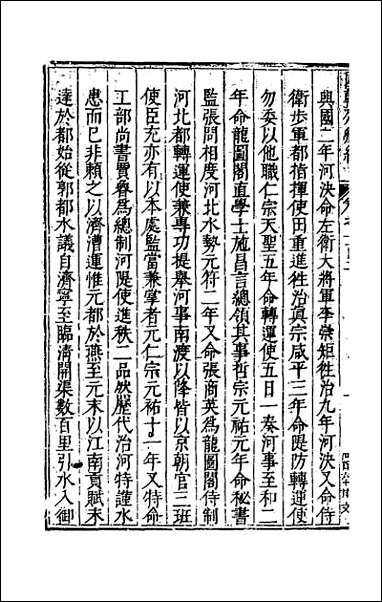 興國二年河決命左衛大將軍李崇矩往治九年河決又命侍
衛步軍都指揮使田重進往治眞宗咸平三年命隄防轉運使
勿委以他職仁宗天聖五年命轉運使五日一奏河事至和二
年命龍圖閣直學士施昌言總領其事哲宗元祐元年命秘書
監張問相度河北水勢元符二年又命張商英爲龍圖閣待制
河北都轉運使兼專功提舉河事南渡以降皆以京朝官三班
使臣充亦有以本處監當兼掌者元仁宗元祐十一年又特命
工部尚書賈魯爲總制河隄使進秩二品然歷代治河特謹水
患而已非賴之以濟漕運惟元都於燕至元末以江南貢賦未
達於都始從郭都水議自濟寧至臨淸開渠數百里引水入御